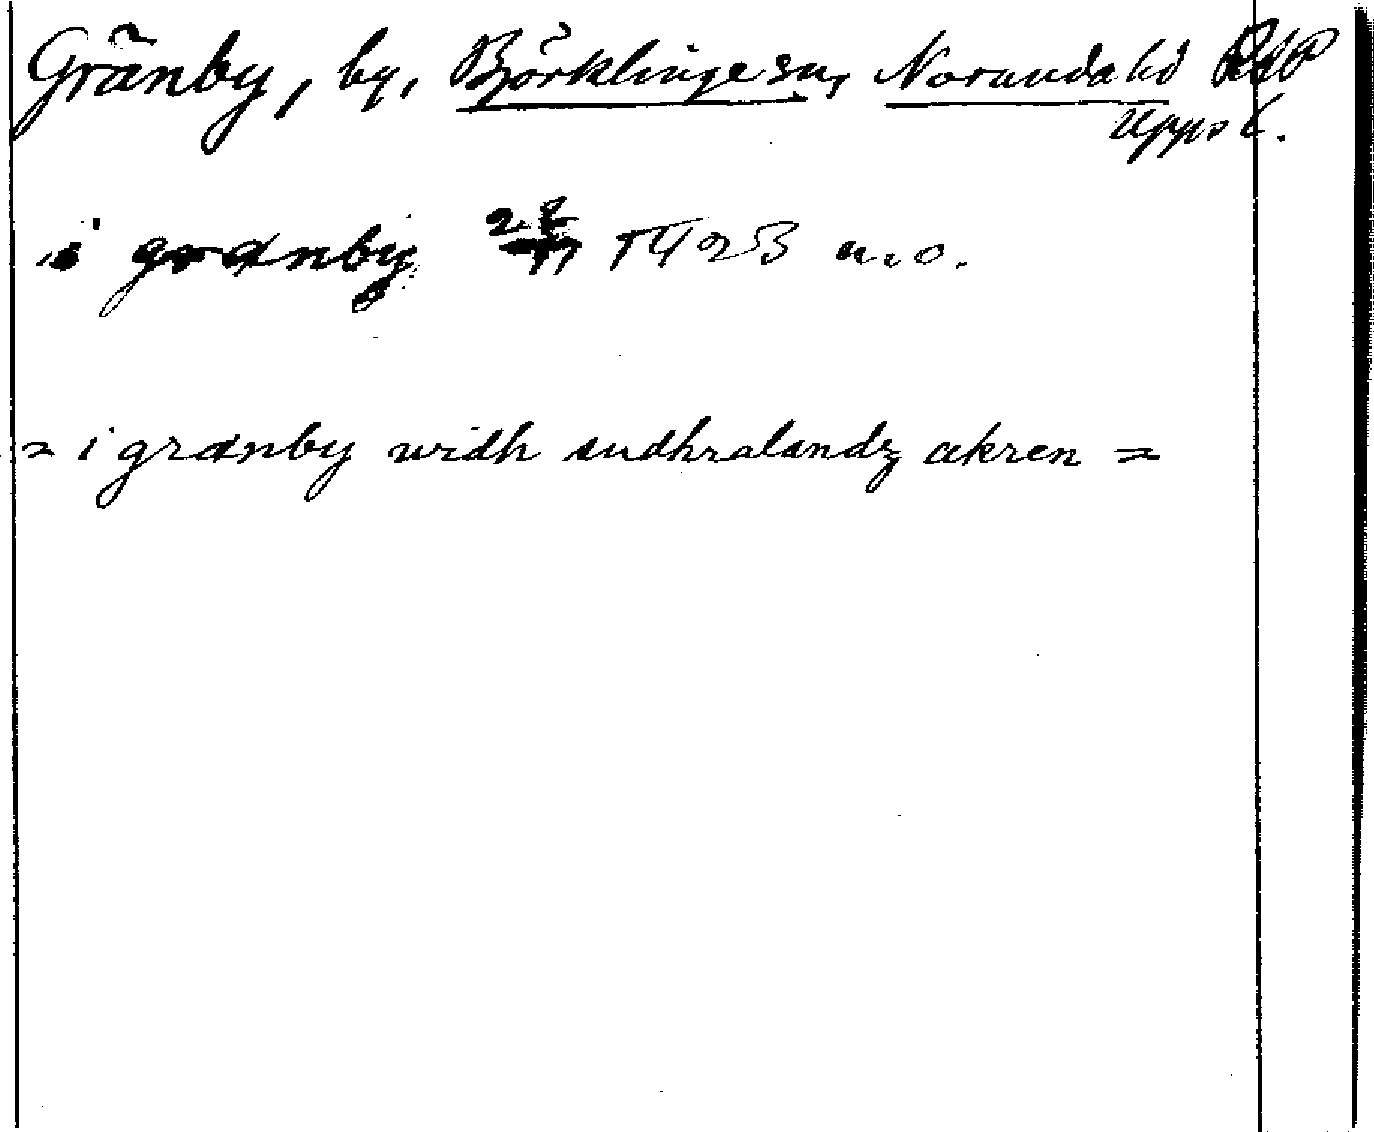 Gränby, by, Björklinge sn, Norunda hd RAP
Upps l.
i grænby 28/11 1423 u.o.
= i grænby widh sudhralandz akren =